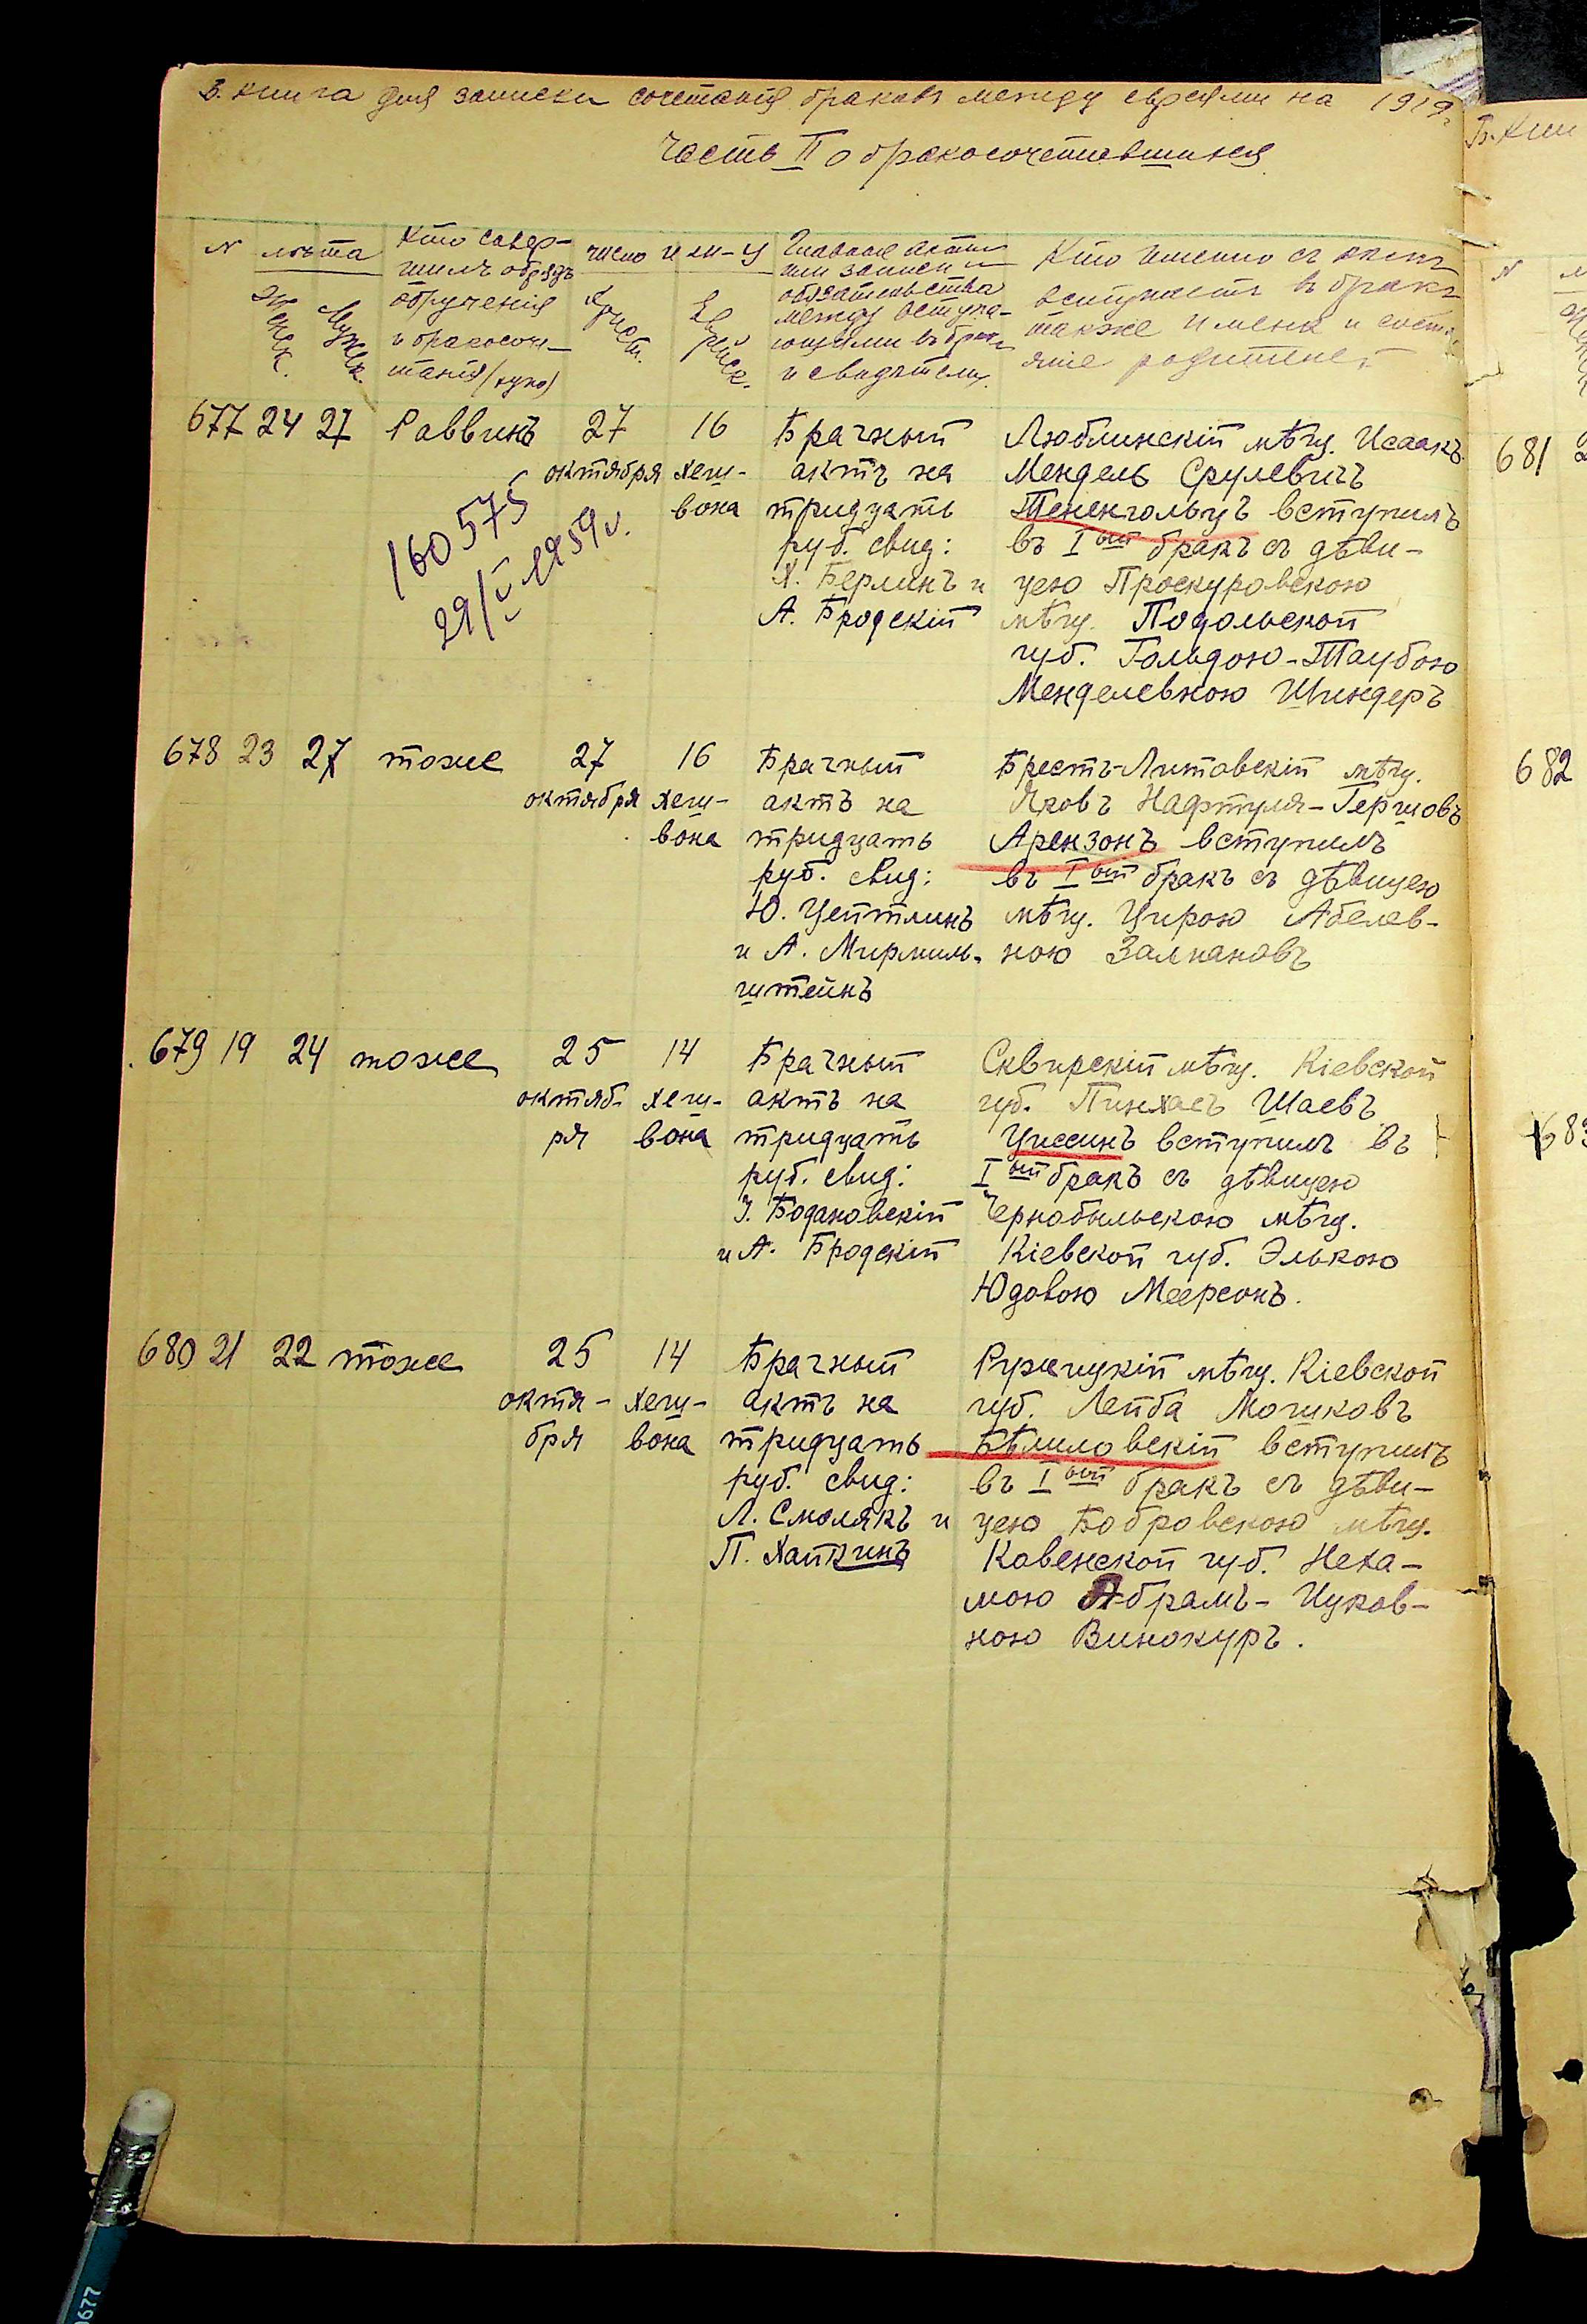 Б. книга для записки сочетанія браковъ между евреями на 1919 г.
Часть II о бракосочетавшихся
N лѣта Женск. Мужск.
Кто совер-
шилъ обрядъ
обрученія
и бракосоче-
танія (хупо)
число и м-ц Христ. Еврейск.
Главные акты
или записи и
обязательства
между вступа-
ющими въ бракъ
и свидѣтели.
Кто именно съ кѣмъ
вступаетъ въ бракъ
также имена и состо-
яніе родителей
677 24 27 Раввинъ 27 октября 16 хеш-
вона
Брачный
актъ на
тридцать
руб. свид:
Х. Берлинъ и
А. Бродскій
Люблинскій мѣщ. Исаакъ
Мендель Срулевичъ
Тененгольцъ вступилъ
въ I ый бракъ съ дѣви-
цею Проскуровскою
мѣщ. Подольской
губ. Гольдою-Таубою
Менделевною Шиндеръ
160575
29/V 1959 г.
678 23 27 тоже 27 октября 16 хеш-
вона
Брачный
актъ на
тридцать
руб. свид:
Ю. Цейтлинъ
и А. Мирмиль-
штейнъ
Брестъ-Литовскій мѣщ.
Яковъ Нафтуля-Гершовъ
Арензонъ вступилъ
въ I ый бракъ съ дѣвицею
мѣщ. Цирою Абелев-
ною Залмановъ
679 19 24 тоже 25 октяб-
ря
14 хеш-
вона
Брачный
актъ на
тридцать
руб. свид:
І. Бодановскій
и А. Бродскій
Сквирскій мѣщ. Кіевской
губ. Пинхасъ Шаевъ
Циссинъ вступилъ въ
I ый бракъ съ дѣвицею
Чернобыльскою мѣщ.
Кіевской губ. Элькою
Юдовою Меерсонъ.
680 21 22 тоже 25 октя-
бря
14 хеш-
вона
Брачный
актъ на
тридцать
руб. свид:
Л. Смолякъ и
П. Хайкинъ
мѣщ. Кіевской
губ. Лейба Мошковъ
Бѣлиловскій вступилъ
въ I ый бракъ съ дѣви-
цею Бобровскою мѣщ.
Ковенской губ. Неха-
мою Абрамъ-Ицков-
ною Винокуръ.
Б. Кни
N
681
682
683
0677